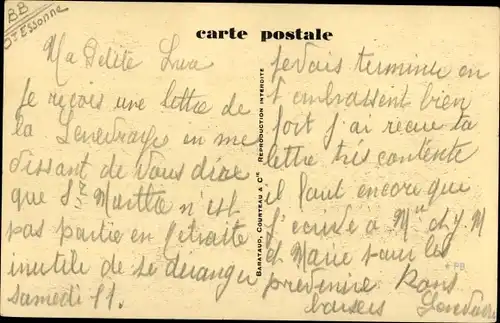 BB
Dt Essonne
carte postale
Ma Petite Lura
Je reçois une lettre de
la Genevraye en me
dissant de vous dire
que Sr Marthe n'est
pas partie en retraite
inutile de se déranger
samedi 11.
BARATAUD, COURTEAU & Cie REPRODUCTION INTERDITE
Je vais terminer en
t embrassent bien
fort j'ai recue ta
lettre très contente
il faut encore que
j' écrise à Mme et M
et Marie pour les
prévenire Bons
baisers
BB